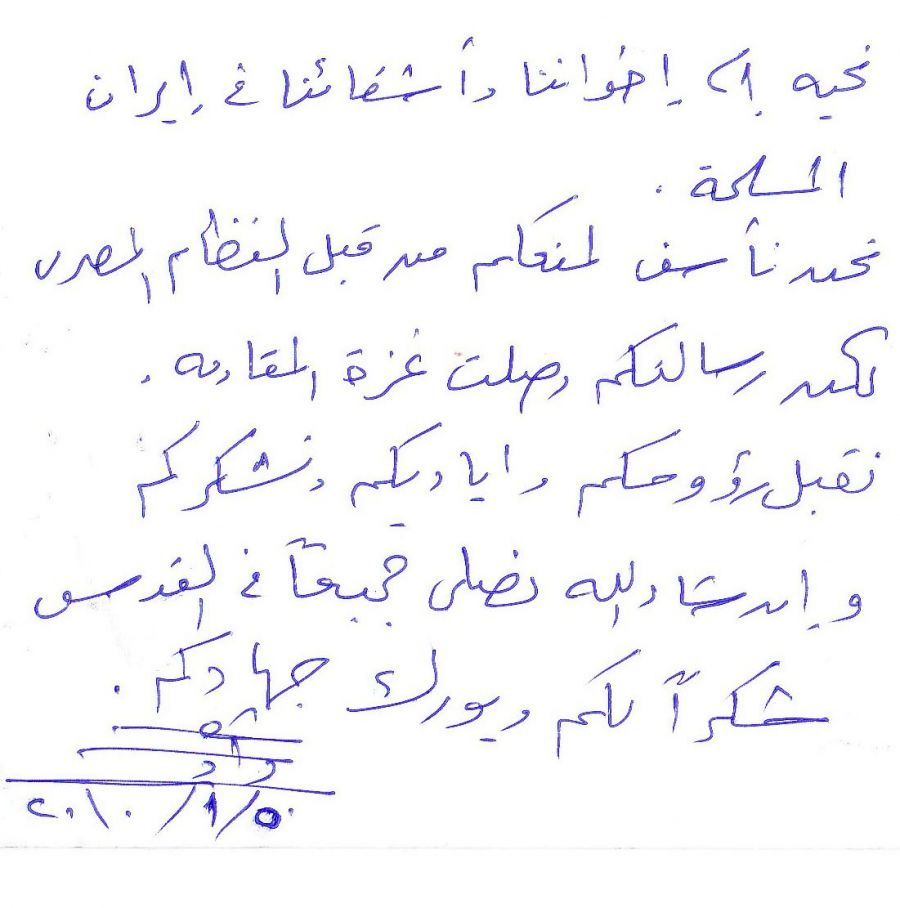 تحيه إلى إخواننا وأشقائنا في إيران
المسلمة .
نحن نأسف لمنعكم من قبل النظام المصرى
لكن رسالتكم وصلت غزة المقاومه .
نقبل رؤوسكم واياديكم ونشكركم
وإن شاء الله نصلى جميعاً في القدس
شكراً لكم وبورك جهادكم .
٢٠١٠/١/٥